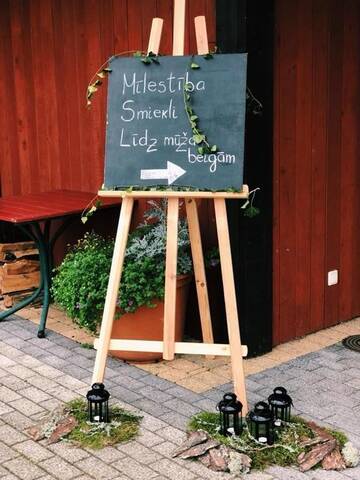 Mīlestība
Smiekli
Līdz mūža
beigām